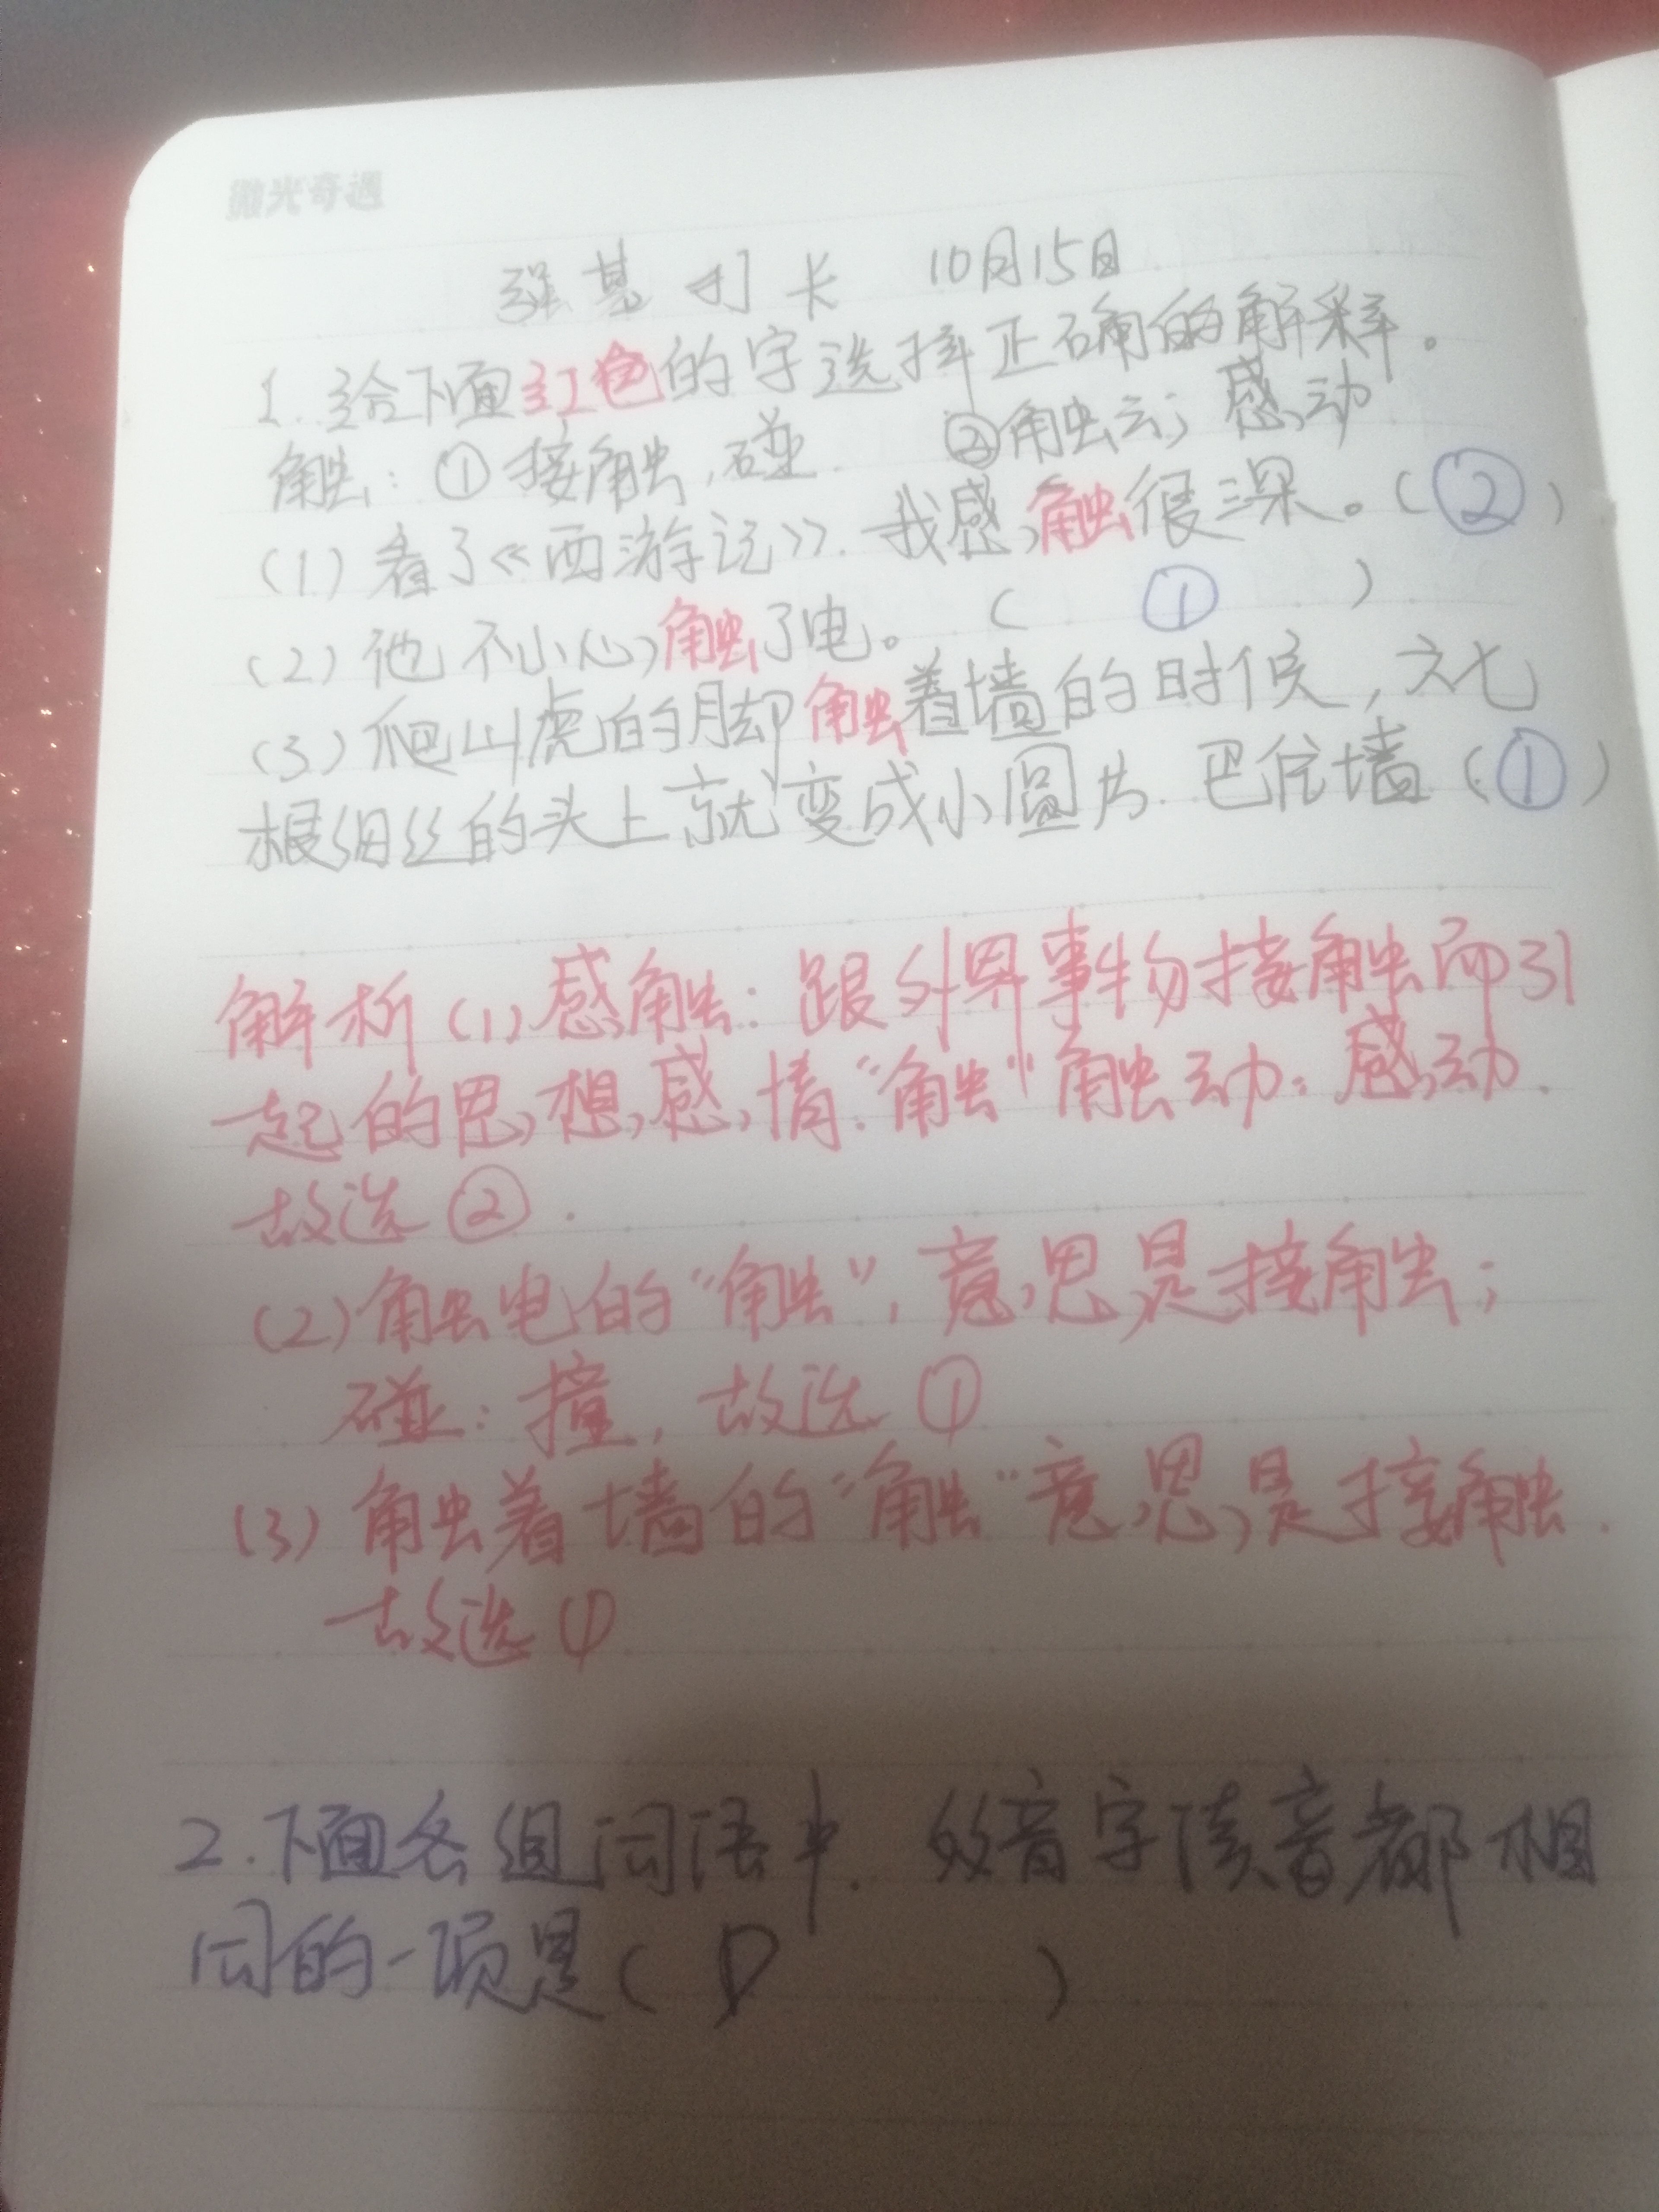 微光奇遇
强基打卡 10月15日
1.给下面红色的字选择正确的解释。
触:①接触,碰. ②触动;感动
(1)看了《西游记》.我感触很深。(②)
(2)他不小心触了电。(①)
(3)爬山虎的脚触着墙的时候,六七
根细丝的头上就变成小圆片.巴住墙(①)
解析(1)感触:跟外界事物接触而引
起的思想感情."触"触动:感动.
故选②.
(2)触电的"触",意思是接触;
碰:撞,故选①
(3)触着墙的"触"意思是接触.
故选①
2.下面各组词语中.多音字读音都相
同的一项是(D)